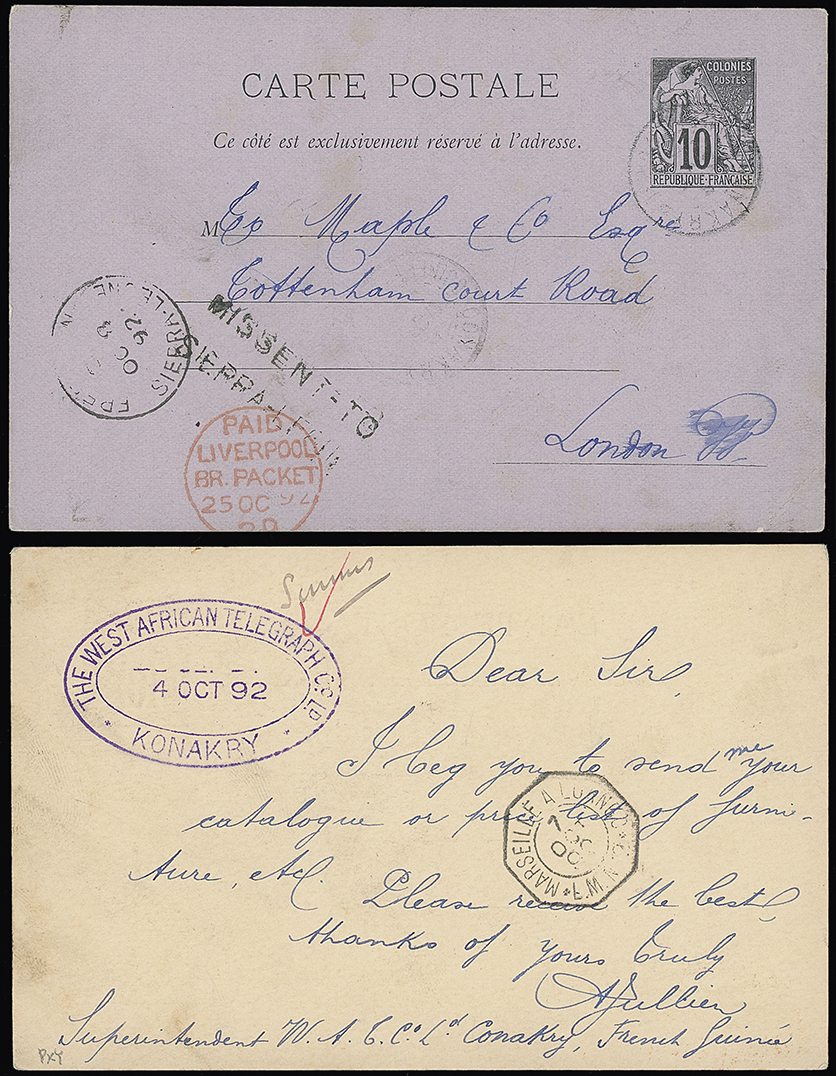 CARTE POSTALE
Ce côté est exclusivement réservé à l'adresse.
COLONIES
POSTES
10
RÉPUBLIQUE·FRANÇAISE
M To Maple & Co Esqre
Tottenham court Road
London W.
SIERRA-LEONE
OC 8
92
MISSENT-TO
SIERRA-LEON
PAID
LIVERPOOL
BR. PACKET
25 OC 92
THE WEST AFRICAN TELEGRAPH Co. LD.
4 OCT 92
KONAKRY
Dear Sir,
I beg you to send me your
catalogue or price list of furni-
ture, etc. Please receive the best
thanks of yours truly
AJullien
Superintendent W. A. T. Co Ld Conakry, French Guinée
MARSEILLE A LOANGO
PXY